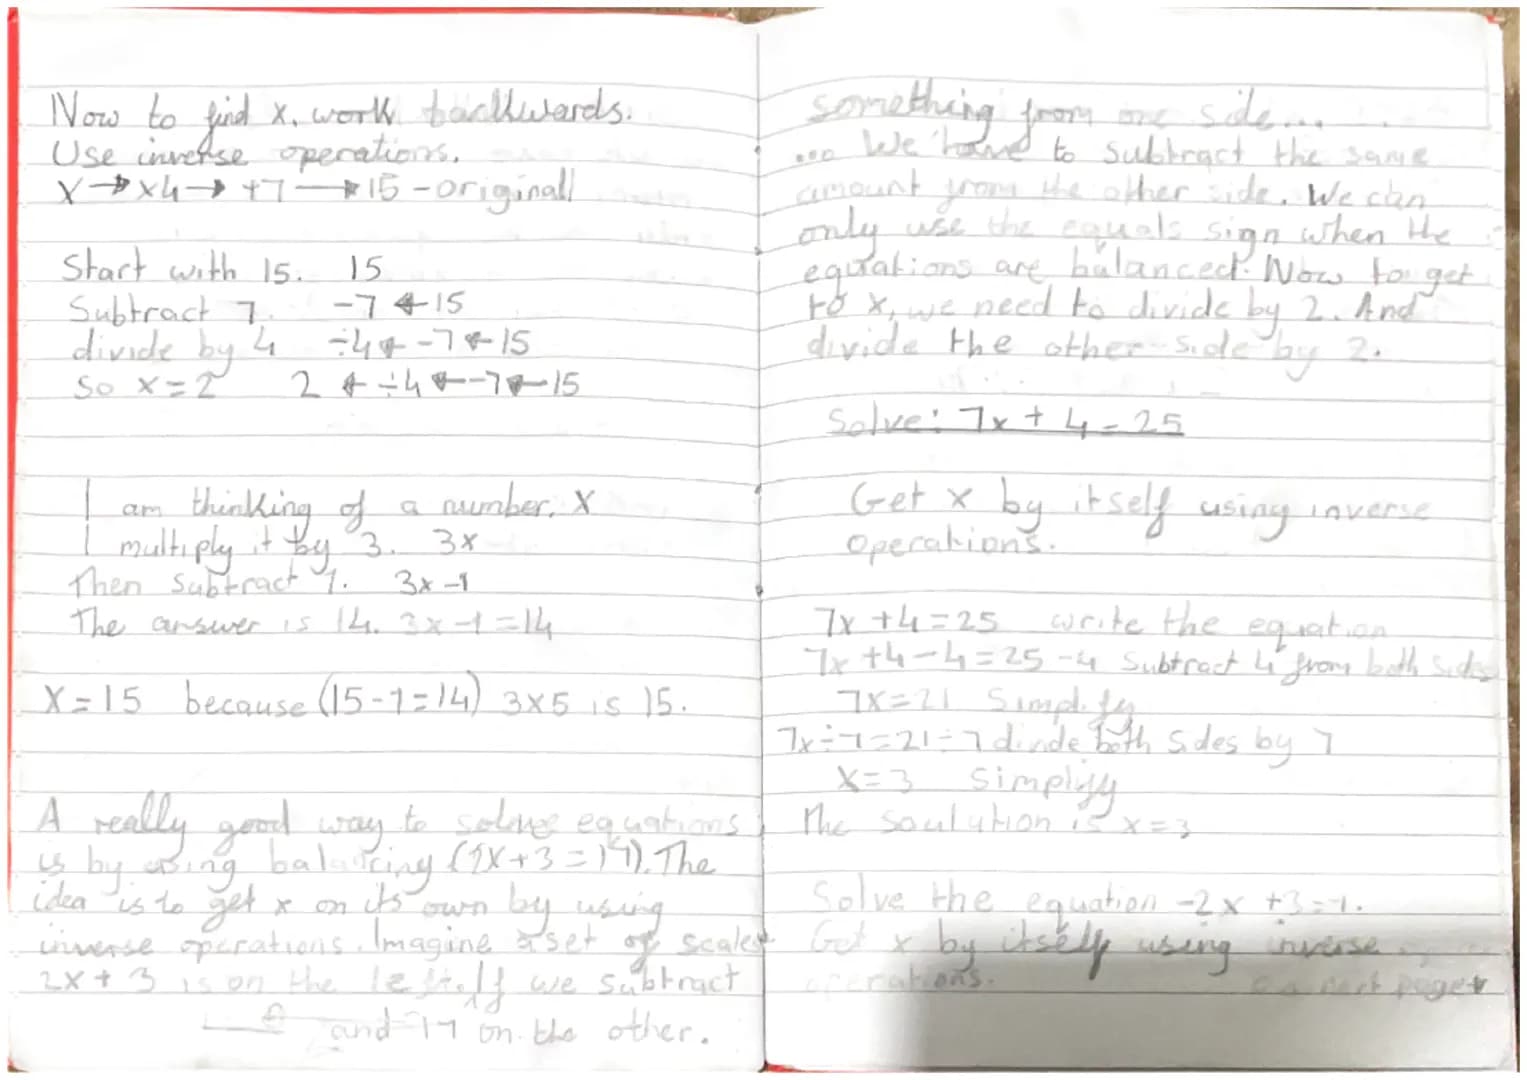 Now to find x, work backwards.
Use inverse operations.
X → x4 → +7 → 15 - original
Start with 15. 15
Subtract 7. -7 ← 15
divide by 4 ÷4 ← -7 ← 15
So x = 2 2 ← ÷4 ← -7 ← 15
I am thinking of a number, X
I multiply it by 3. 3x
Then Subtract 1. 3x -1
The answer is 14. 3x-1=14
X=15 because (15-1=14) 3x5 is 15.
A really good way to solve equations
is by using balancing (2x+3=17). The
idea is to get x on its own by using
inverse operations. Imagine a set of scales
2x+3 is on the left. If we subtract
and 17 on the other.
something from one side...
... We have to subtract the same
amount from the other side. We can
only use the equals sign when the
equations are balanced. Now to get
to x, we need to divide by 2. And
divide the other side by 2.
Solve: 7x + 4 = 25
Get x by itself using inverse
operations.
7x +4=25 write the equation
7x +4-4=25-4 Subtract 4 from both sides
7x=21 Simplify
7x÷7=21÷7 divide both sides by 7
X=3 Simplify
The soulution is x=3
Solve the equation -2x +3=-1.
Get x by itself using inverse
operations. next page